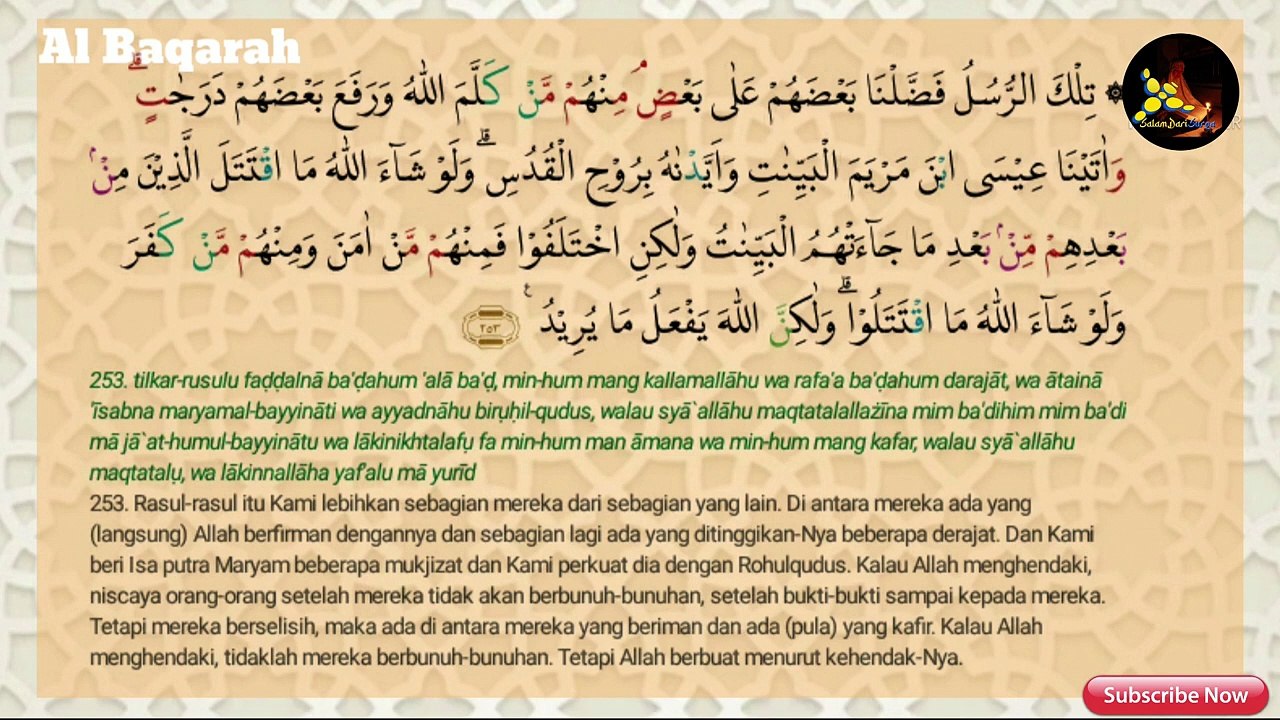 Al Baqarah
۞ تِلْكَ الرُّسُلُ فَضَّلْنَا بَعْضَهُمْ عَلٰى بَعْضٍۘ مِنْهُمْ مَّنْ كَلَّمَ اللّٰهُ وَرَفَعَ بَعْضَهُمْ دَرَجٰتٍۗ
وَاٰتَيْنَا عِيْسَى ابْنَ مَرْيَمَ الْبَيِّنٰتِ وَاَيَّدْنٰهُ بِرُوْحِ الْقُدُسِۗ وَلَوْ شَاۤءَ اللّٰهُ مَا اقْتَتَلَ الَّذِيْنَ مِنْۢ
بَعْدِهِمْ مِّنْۢ بَعْدِ مَا جَاۤءَتْهُمُ الْبَيِّنٰتُ وَلٰكِنِ اخْتَلَفُوْا فَمِنْهُمْ مَّنْ اٰمَنَ وَمِنْهُمْ مَّنْ كَفَرَ
وَلَوْ شَاۤءَ اللّٰهُ مَا اقْتَتَلُوْاۗ وَلٰكِنَّ اللّٰهَ يَفْعَلُ مَا يُرِيْدُ ࣖ ٢٥٣
253. tilkar-rusulu faḍḍalnā ba'ḍahum 'alā ba'ḍ, min-hum mang kallamallāhu wa rafa'a ba'ḍahum darajāt, wa ātainā
'īsabna maryamal-bayyināti wa ayyadnāhu birụḥil-qudus, walau syā`allāhu maqtatalallażīna mim ba'dihim mim ba'di
mā jā`at-humul-bayyinātu wa lākinikhtalafụ fa min-hum man āmana wa min-hum mang kafar, walau syā`allāhu
maqtatalụ, wa lākinnallāha yaf'alu mā yurīd
253. Rasul-rasul itu Kami lebihkan sebagian mereka dari sebagian yang lain. Di antara mereka ada yang
(langsung) Allah berfirman dengannya dan sebagian lagi ada yang ditinggikan-Nya beberapa derajat. Dan Kami
beri Isa putra Maryam beberapa mukjizat dan Kami perkuat dia dengan Rohulqudus. Kalau Allah menghendaki,
niscaya orang-orang setelah mereka tidak akan berbunuh-bunuhan, setelah bukti-bukti sampai kepada mereka.
Tetapi mereka berselisih, maka ada di antara mereka yang beriman dan ada (pula) yang kafir. Kalau Allah
menghendaki, tidaklah mereka berbunuh-bunuhan. Tetapi Allah berbuat menurut kehendak-Nya.
SalamDariSurga
Subscribe Now